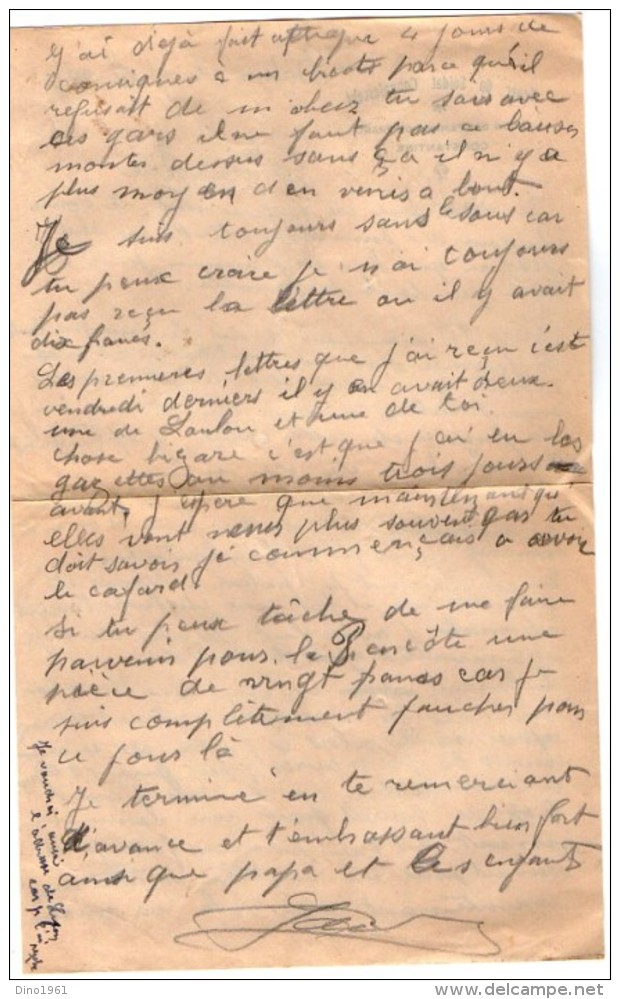 J'ai déjà fait 4 jours de
consignes à un parce qu'il
refusait de m'obeir tu sais avec
ces gars il ne faut pas se laisser
monter dessus sans ça il n'y a
plus moyen d'en venir a bout.
Je suis toujours sans le sous car
tu peux croire je n'ai toujours
pas reçu la lettre ou il y avait
dix francs.
Les premieres lettres que j'ai reçu c'est
vendredi derniers il y en avait deux.
une de Loulou et une de toi.
chose bizare c'est que j'ai eu les
gazettes au moins trois jours
avant, j'espere que maintenant
elles vont plus souvent car tu
doit savoir je commençais a avoir
le cafard.
si tu peux tâche de me faire
parvenir pour la Pencôte une
pièce de vingt francs car je
suis complètement faucher pour
ce jour là
Je termine en te remerciant
d'avance et t'embrassant bien fort
ainsi que papa et les enfants
Je voudrai aussi
l'adresse de
car je l'ai
Dino1961
www.delcampe.net